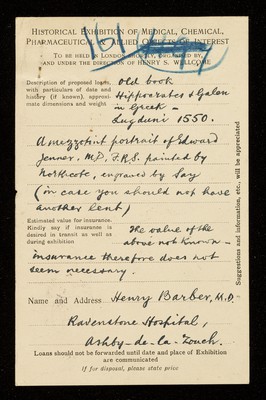 HISTORICAL EXHIBITION OF MEDICAL, CHEMICAL,
PHARMACEUTICAL AND ALLIED OBJECTS OF INTEREST
TO BE HELD IN LONDON SHORTLY, ORGANISED BY,
AND UNDER THE DIRECTION OF HENRY S. WELLCOME
161
Description of proposed loans,
with particulars of date and
history (if known), approx-
imate dimensions and weight
old book
Hippocrates & Galen
in Greek -
Lugduni 1550.
A mezzotint portrait of Edward
Jenner. M.D. F.R.S. painted by
Northcote, engraved by Say
(in case you should not have
another lent)
Estimated value for insurance.
Kindly say if insurance is
desired in transit as well as
during exhibition
The value of the
above not known -
insurance therefore does not
seem necessary.
Name and Address Henry Barber, M.D.
Ravenstone Hospital,
Ashby-de-la-Zouch.
Loans should not be forwarded until date and place of Exhibition
are communicated
If for disposal, please state price
Suggestions and information, etc., will be appreciated